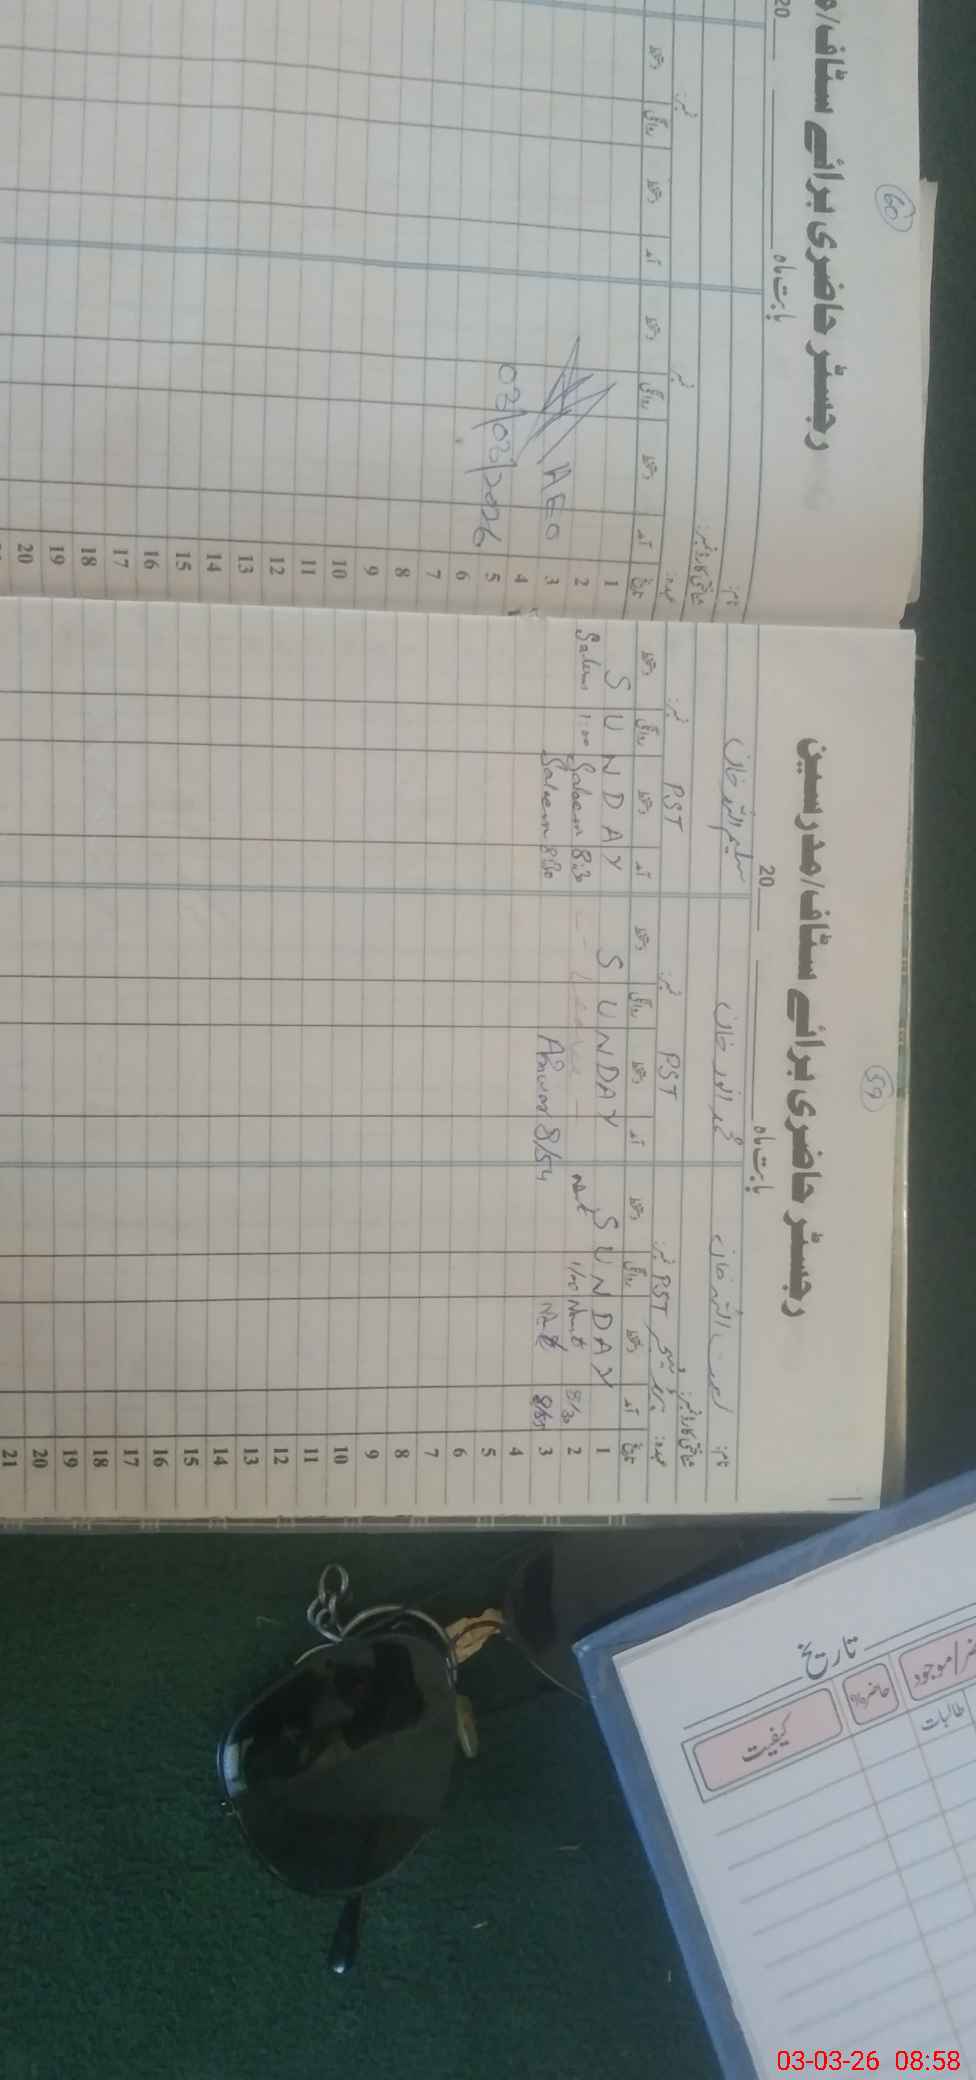 60
رجسٹر حاضری برائے سٹاف/
بابت ماہ 20
نام:
شناختی کارڈ نمبر:
عہدہ: نمبر: نمبر:
تاریخ آمد دستخط روانگی دستخط آمد دستخط روانگی دستخط
1
2
3 AEO
4
5 03/03/2026
6
7
8
9
10
11
12
13
14
15
16
17
18
19
20
59
رجسٹر حاضری برائے سٹاف/مدرسین
بابت ماہ 20
نام: خان محمد انور خان سلیم اللہ خان
شناختی کارڈ نمبر:
عہدہ: PST نمبر: PST نمبر: PST نمبر:
تاریخ آمد دستخط روانگی دستخط آمد دستخط روانگی دستخط آمد دستخط روانگی دستخط
1 SUNDAY SUNDAY SUNDAY
2 8/30 1/00 Leave 8:30 Saleem 1:00 Saleem
3 8/55 Anwar 8/54 Saleem 8:30
4
5
6
7
8
9
10
11
12
13
14
15
16
17
18
19
20
21
تاریخ
/موجود حاضر% کیفیت
طالبات
03-03-26 08:58